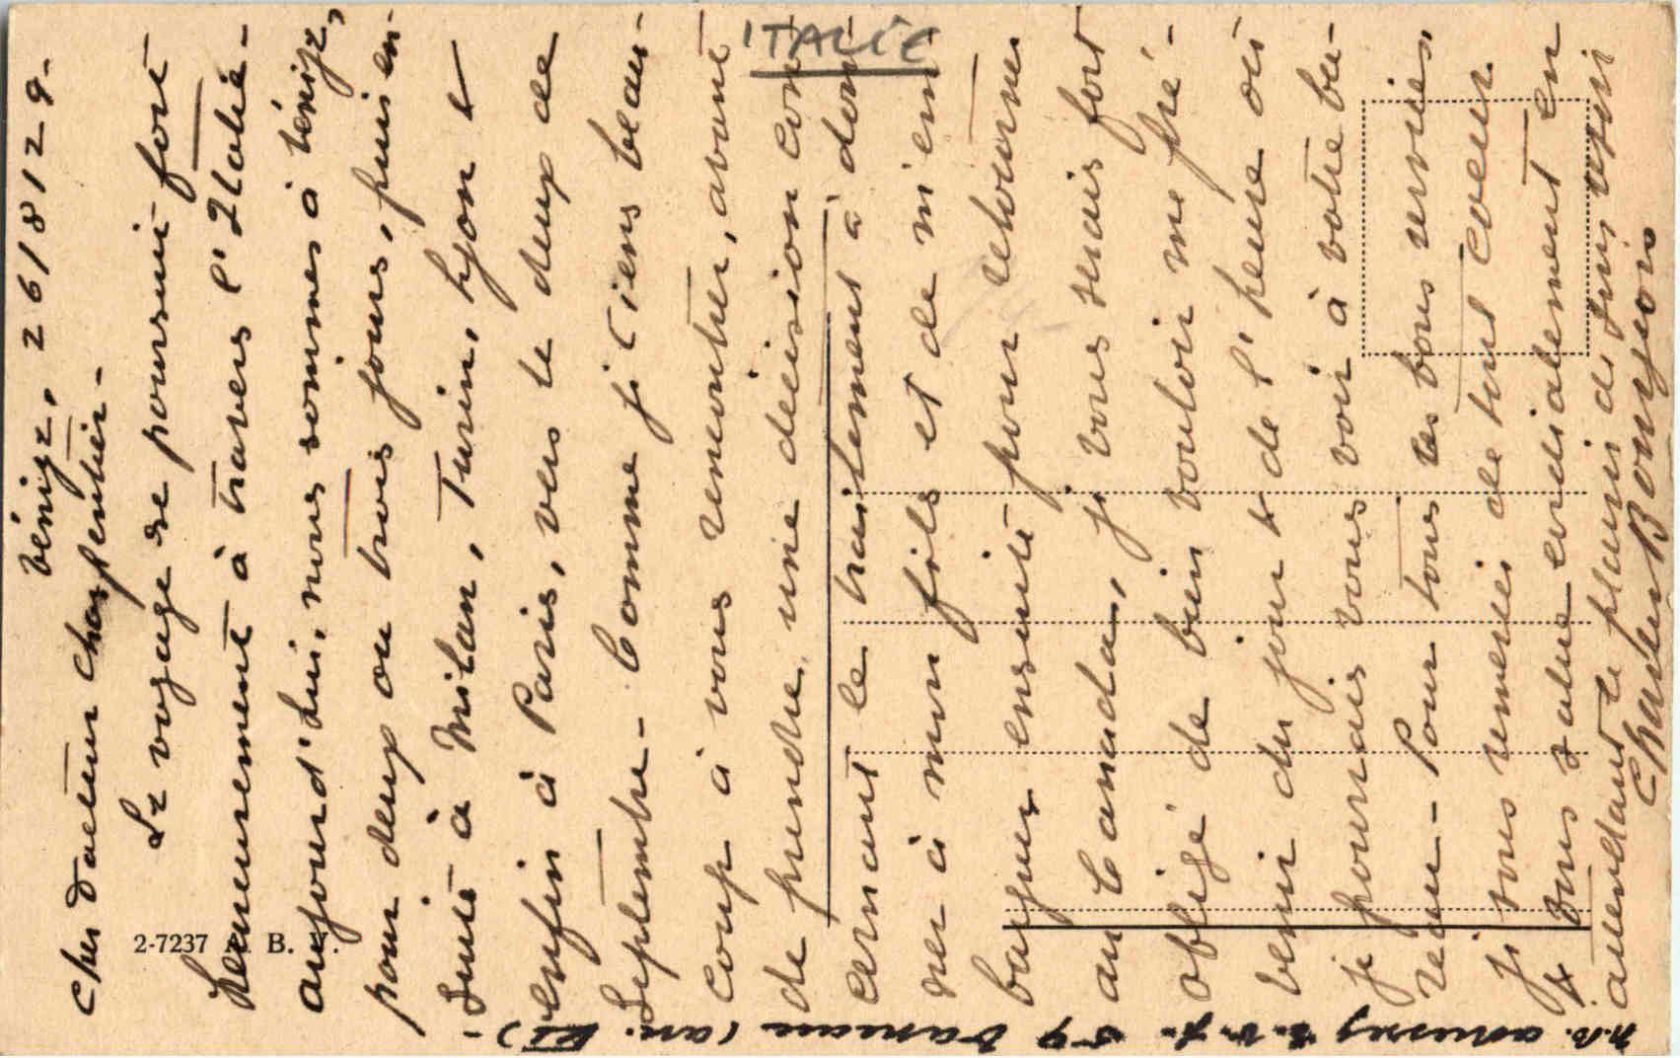 Vénize, 26/8/29.
Cher Docteur Charpentier.
Le voyage se poursuit fort
heureusement à travers l'Italie.
aujourd'hui, nous sommes à Vénize,
pour deux ou trois jours, puis en-
suite à Milan, Turin, Lyon &
enfin à Paris, vers le deux de
Septembre. Comme je tiens beau-
coup à vous rencontrer, avant
de prendre une décision con-
cernant le traitement à don-
ner à mon fils et de m'em-
barquer ensuite pour retourner
au Canada, je vous serais fort
obligé de bien vouloir me pré-
venir du jour & de l'heure où
je pourrais vous voir à votre bu-
reau. Pour tous les bons services,
je vous remercie de tout coeur
& vous salue cordialement en
attendant le plaisir de vous revoir
Charles Bourgeois
n.b. adressez s.v.p. 59 (an. )
ITALIE
2-7237 B.